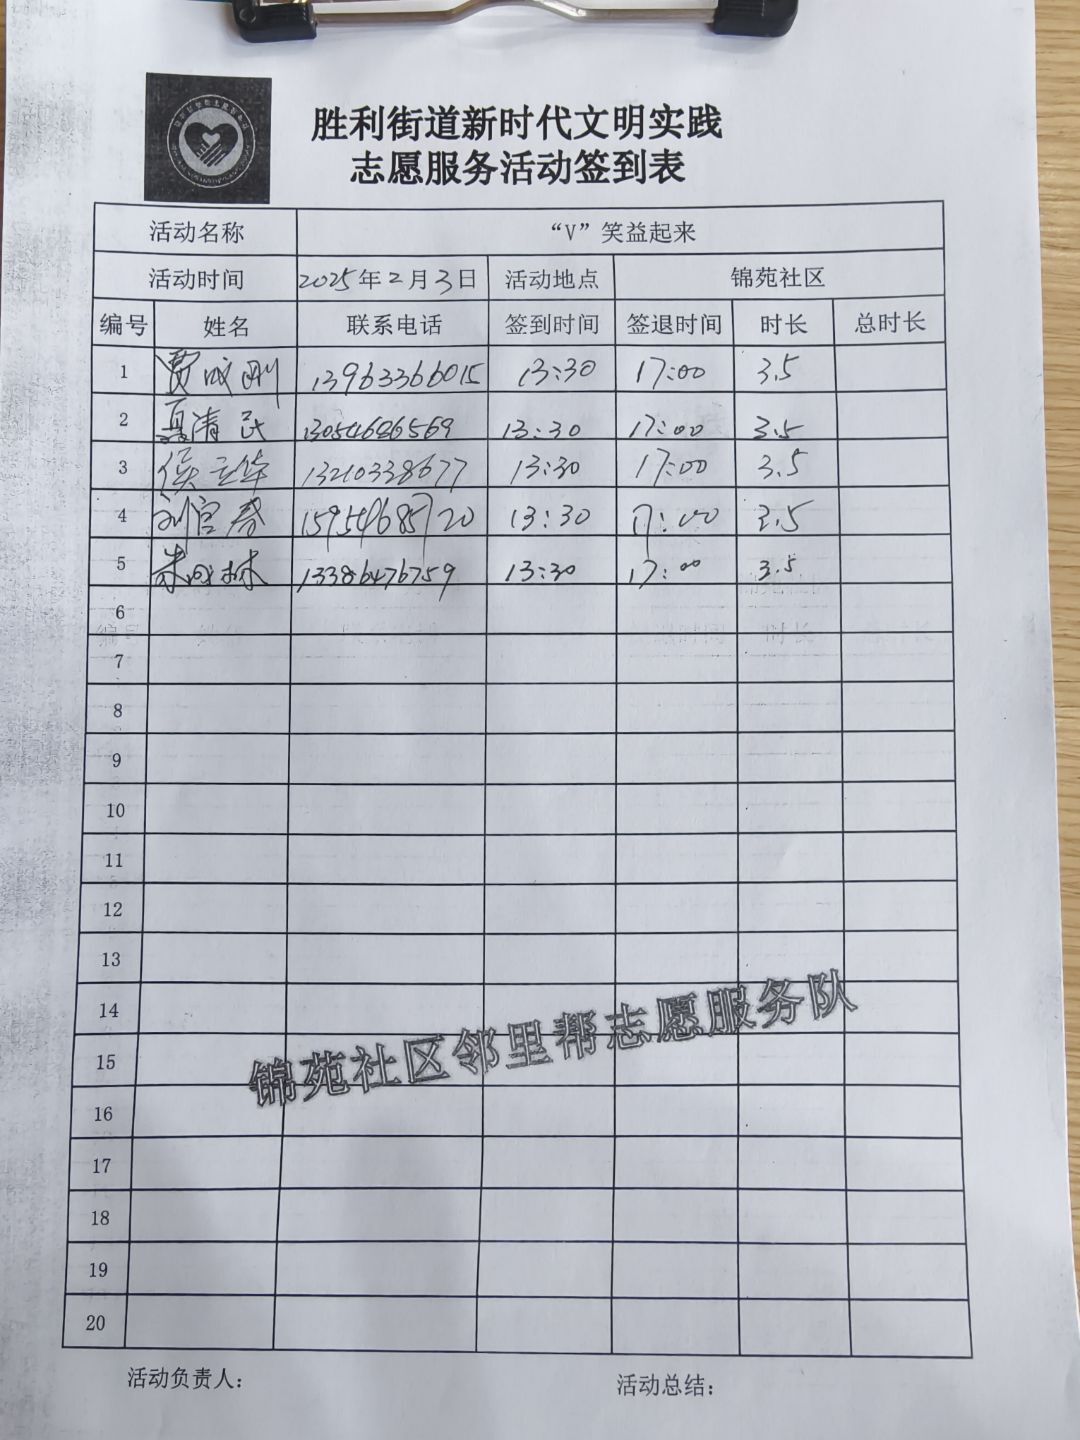 胜利街道新时代文明实践
志愿服务活动签到表
活动名称 “V”笑益起来
活动时间 2025年2月3日 活动地点 锦苑社区
编号 姓名 联系电话 签到时间 签退时间 时长 总时长
1 贾成刚 13963366015 13:30 17:00 3.5
2 聂清民 13054646569 13:30 17:00 3.5
3 侯立华 13210338677 13:30 17:00 3.5
4 刘官春 15954968720 13:30 17:00 3.5
5 朱成林 13386476759 13:30 17:00 3.5
6
7
8
9
10
11
12
13
14
15
16
17
18
19
20
锦苑社区邻里帮志愿服务队
活动负责人： 活动总结：